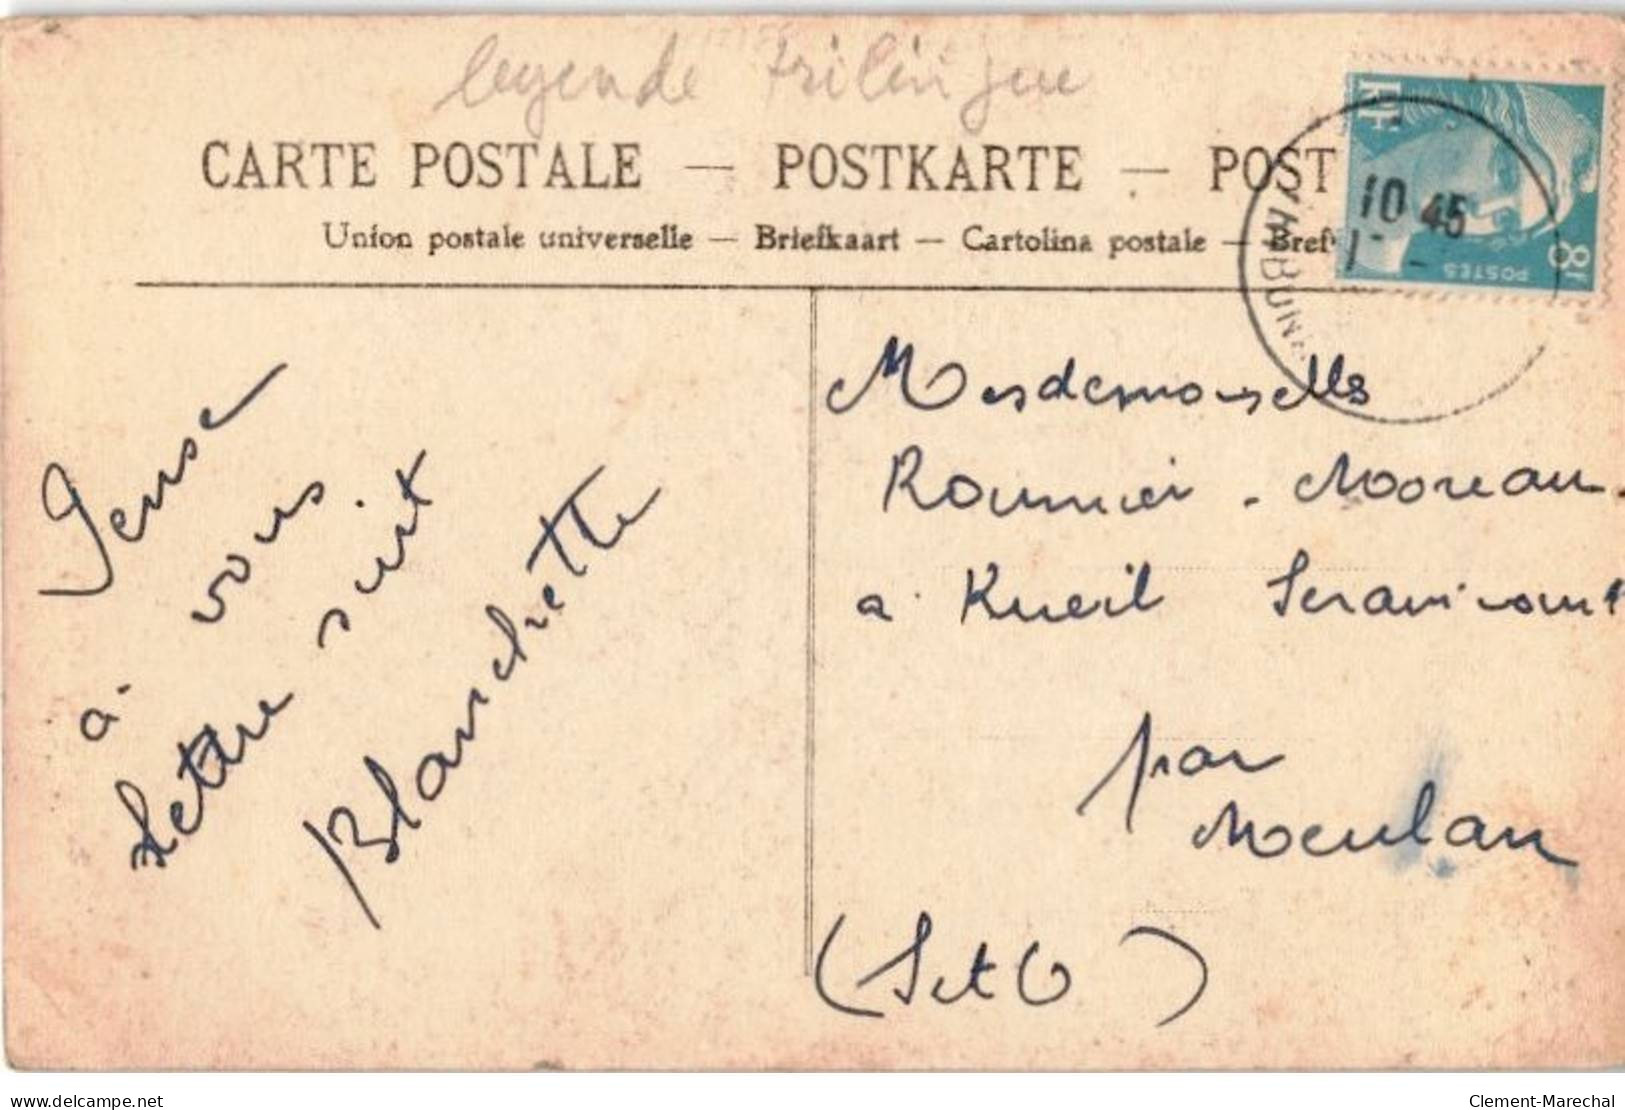 legende trilingue
CARTE POSTALE — POSTKARTE — POST
Union postale universelle — Briefkaart — Cartolina postale — Bref
RF
10 45
1 -
8F
POSTES
Pense
à vous
lettre suit
Blanchette
Mesdemoiselles
Roumier - Moreau
a Rueil Seraincourt
par
Meulan
(S et O)
www.delcampe.net
Clement-Marechal